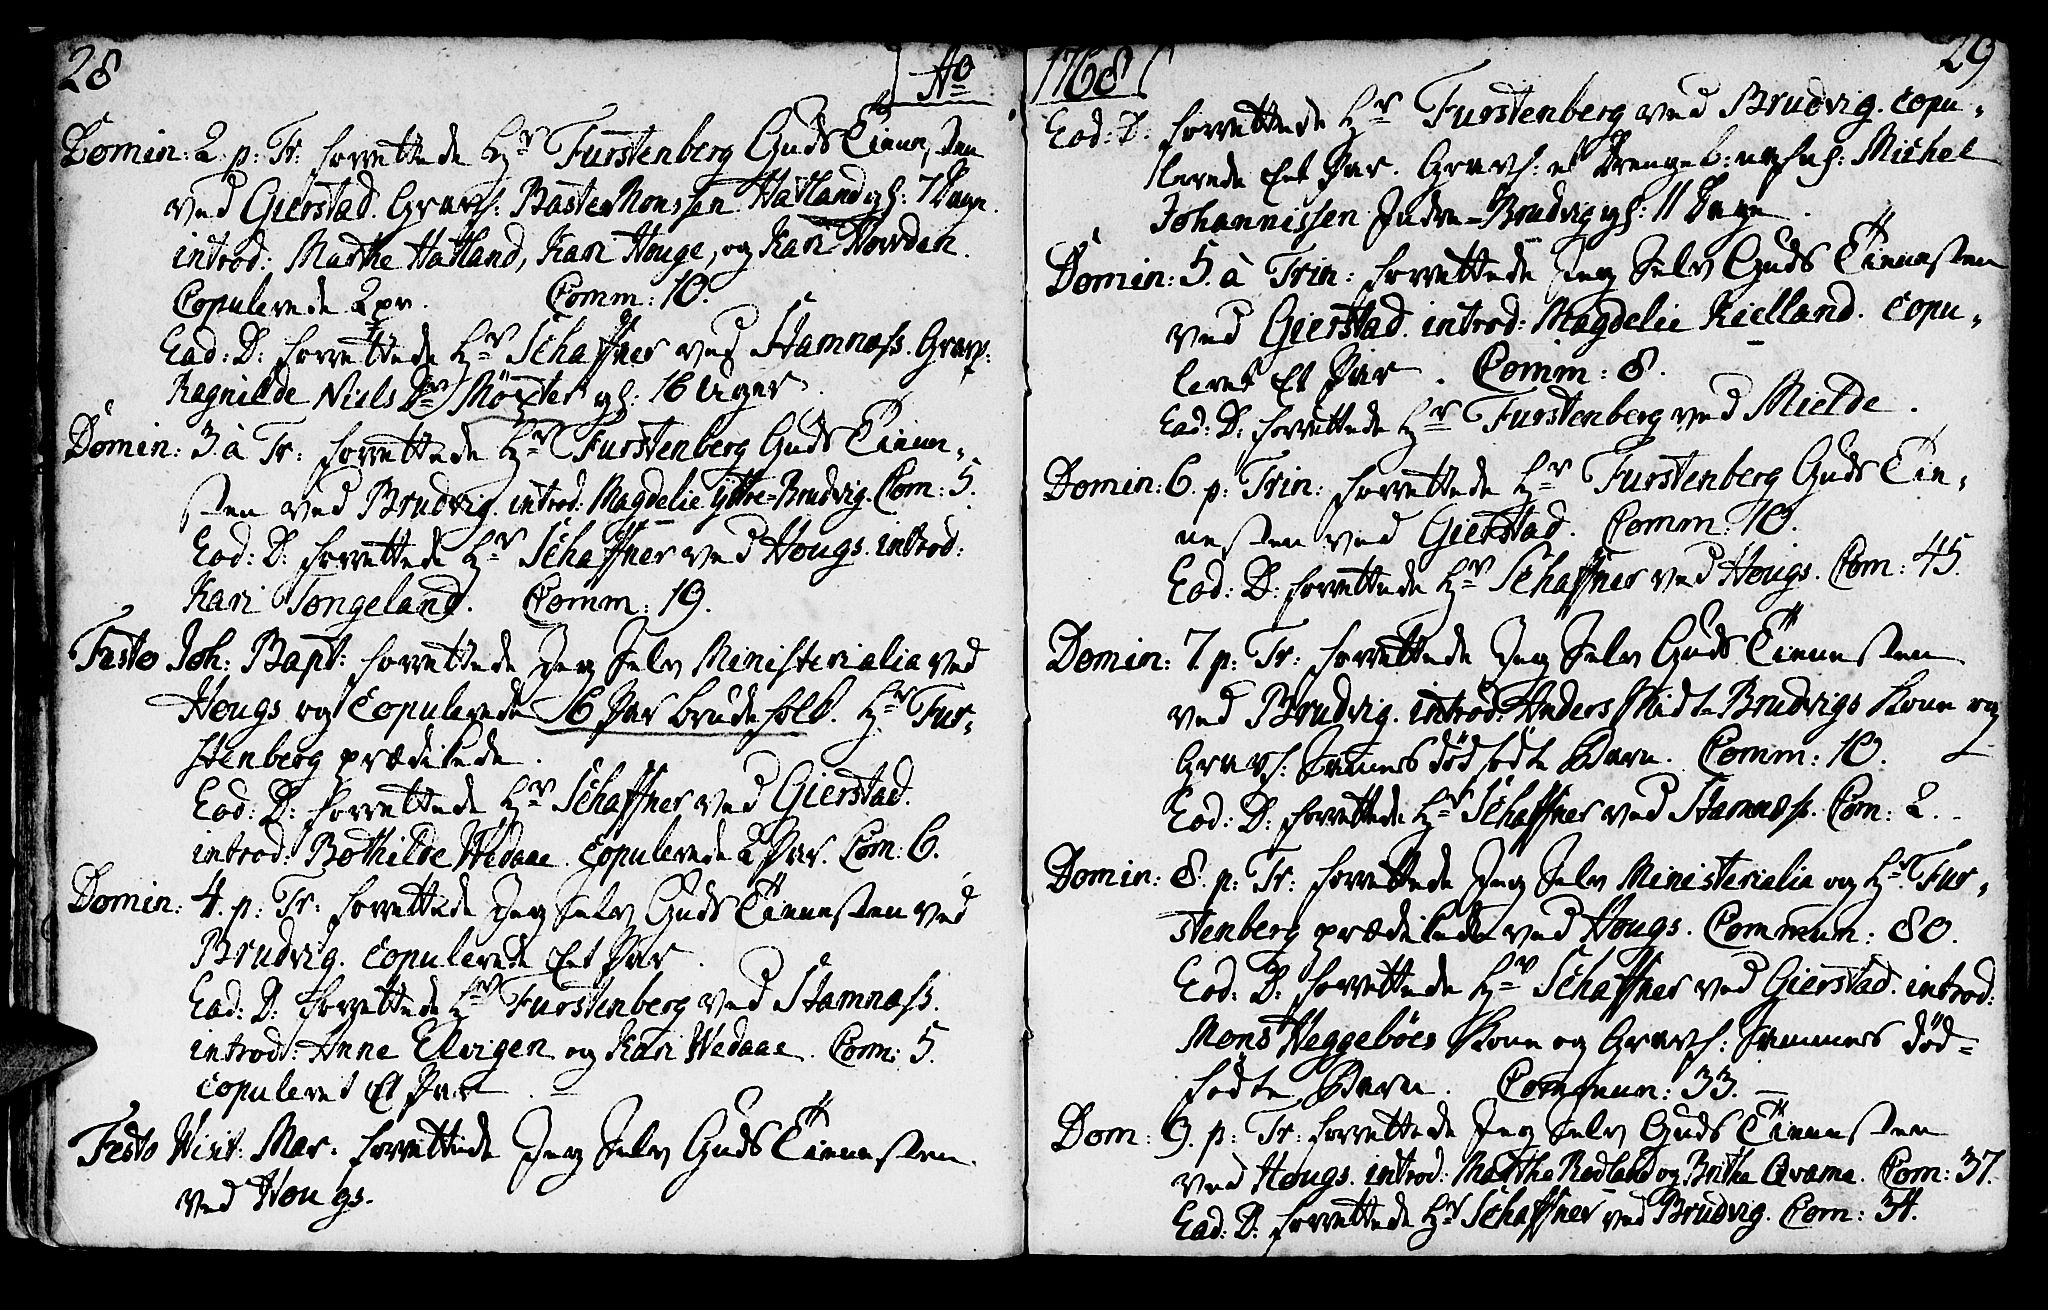 28
Aō
Domin: 2. p: Tr: forrettede Hr Furstenberg Guds Tienesten
ved Gierstad. Gravf: Baste Monssen Hatland gl: 7 Dage.
introd: Marthe Hatland, Kari Houge, og Kari Howden.
Copulerede 2 pr. Comm: 10.
Eod: D: forrettede Hr Schaffner ved Stamnæss. Gravf:
Ragnilde Niels Dr Möster gl: 16 Uger.
Domin: 3. à Tr: forrettede Hr Furstenberg Guds Tiene„
sten ved Brudvig. introd: Magdelie ÿttre=Brudvig. Com: 5.
Eod: D: forrettede Hr Schaffner ved Hougs. introd:
Kari Tongeland. Comm: 19.
Festo Joh: Bapt: forrettede Jeg Selv Ministerialia ved
Hougs og Copulerede 16 Par brudefolk. Hr Fur„
stenberg prædikede.
Eod: D: forrettede Hr Schaffner ved Gierstad.
introd: Bothilde Wedaae. Copulerede 2 Par. Com: 6.
Domin: 4. p: Tr: forrettede Jeg Selv Guds Tienesten ved
Brudvig. Copulerede Eet Par.
Eod: D: forrettede Hr Furstenberg ved Stamnæss.
introd: Anne Elvigen og Kari Wedaae. Com: 5.
Copuleret Et Par.
Festo Visit: Mar: forrettede Jeg Selv Guds Tienesten
ved Hougs.
1768
29
Eod: D: forrettede Hr Furstenberg ved Brudvig. Copu„
lerede Eet Par. Gravf: et Drengeb: Michel
Johannissen Indre=Brudvig gl: 11 Dage.
Domin: 5. à Trin: forrettede Jeg Selv Guds Tienesten
ved Gierstad. introd: Magdelie Kielland. Copu„
leret Et Par. Comm: 8.
Eod: D: forrettede Hr Furstenberg ved Mielde.
Domin: 6. p: Trin: forrettede Hr Furstenberg Guds Tie„
nesten ved Gierstad. Comm: 10.
Eod: D: forrettede Hr Schaffner ved Hougs. Com: 45.
Domin: 7. p: Tr: forrettede Jeg Selv Guds Tienesten
ved Brudvig. introd: Anders Midt=Brudvigs Kone og
Gravf: Sammes dödfödte Barn. Comm: 10.
Eod: D: forrettede Hr Schaffner ved Stamnæss. Com: 2.
Domin: 8. p: Tr: forrettede Jeg Selv Ministerialia og Hr Fur„
stenberg prædikede ved Hougs. Commun: 80.
Eod: D: forrettede Hr Schaffner ved Gierstad. introd:
Mons Heggeböes Kone og Gravf: Sammes död=
födte Barn. Commun: 33.
Dom: 9. p: Tr: forrettede Jeg Selv Guds Tienesten
ved Hougs. introd: Marthe Rødland og Brithe Qvame. Com: 37.
Eod: D: forrettede Hr Schaffner ved Brudvig. Com: 34.